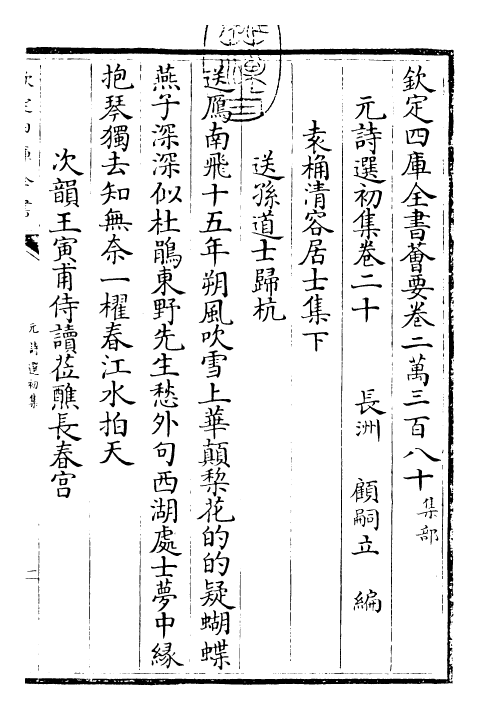 欽定四庫全書薈要卷二萬三百八十集部
元詩選初集卷二十　長洲　顧嗣立　編
袁桷清容居士集下
送孫道士歸杭
送鴈南飛十五年朔風吹雪上華顛棃花的的疑蝴蝶
燕子深深似杜鵑東野先生愁外句西湖處士夢中縁
抱琴獨去知無奈一櫂春江水拍天
次韻王寅甫侍讀莅醮長春宫
元詩選初集